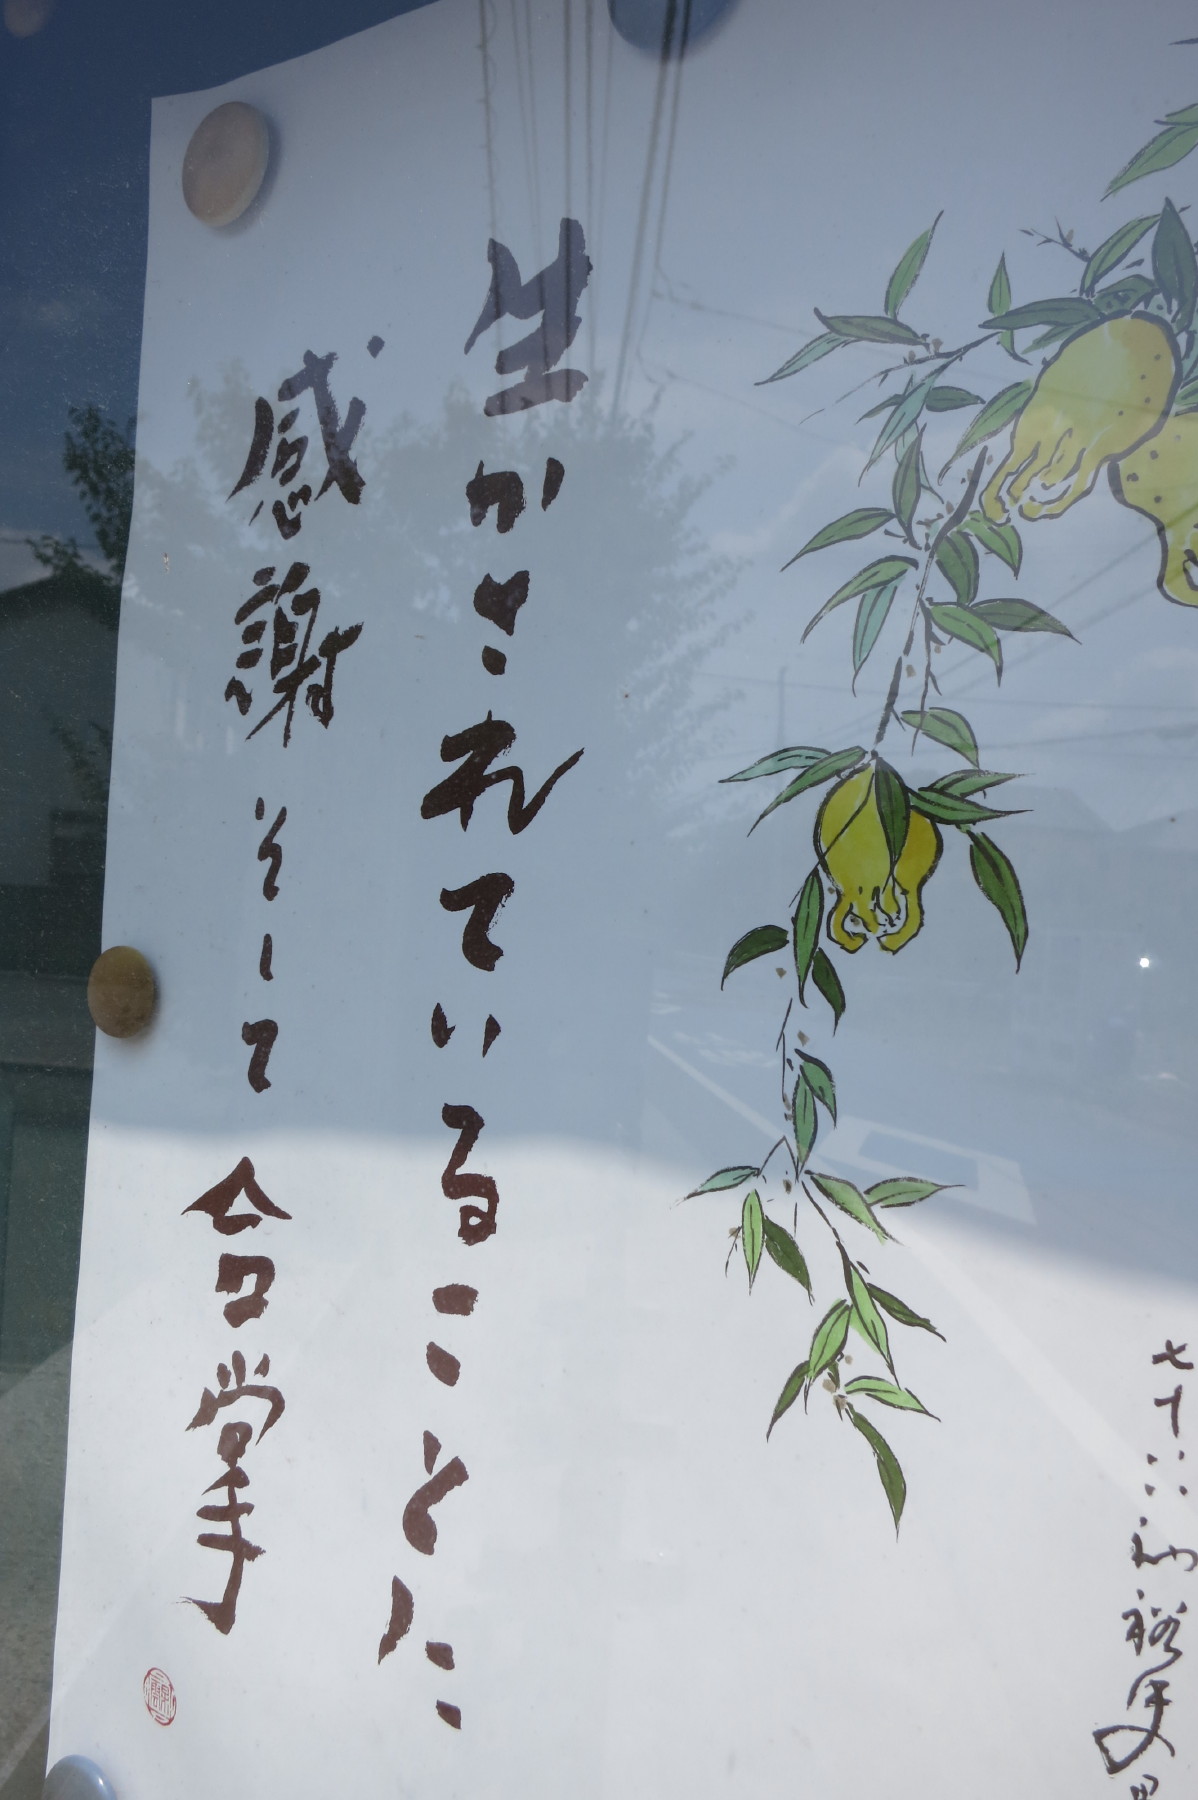 七十六
生かされていることに
感謝そして合掌